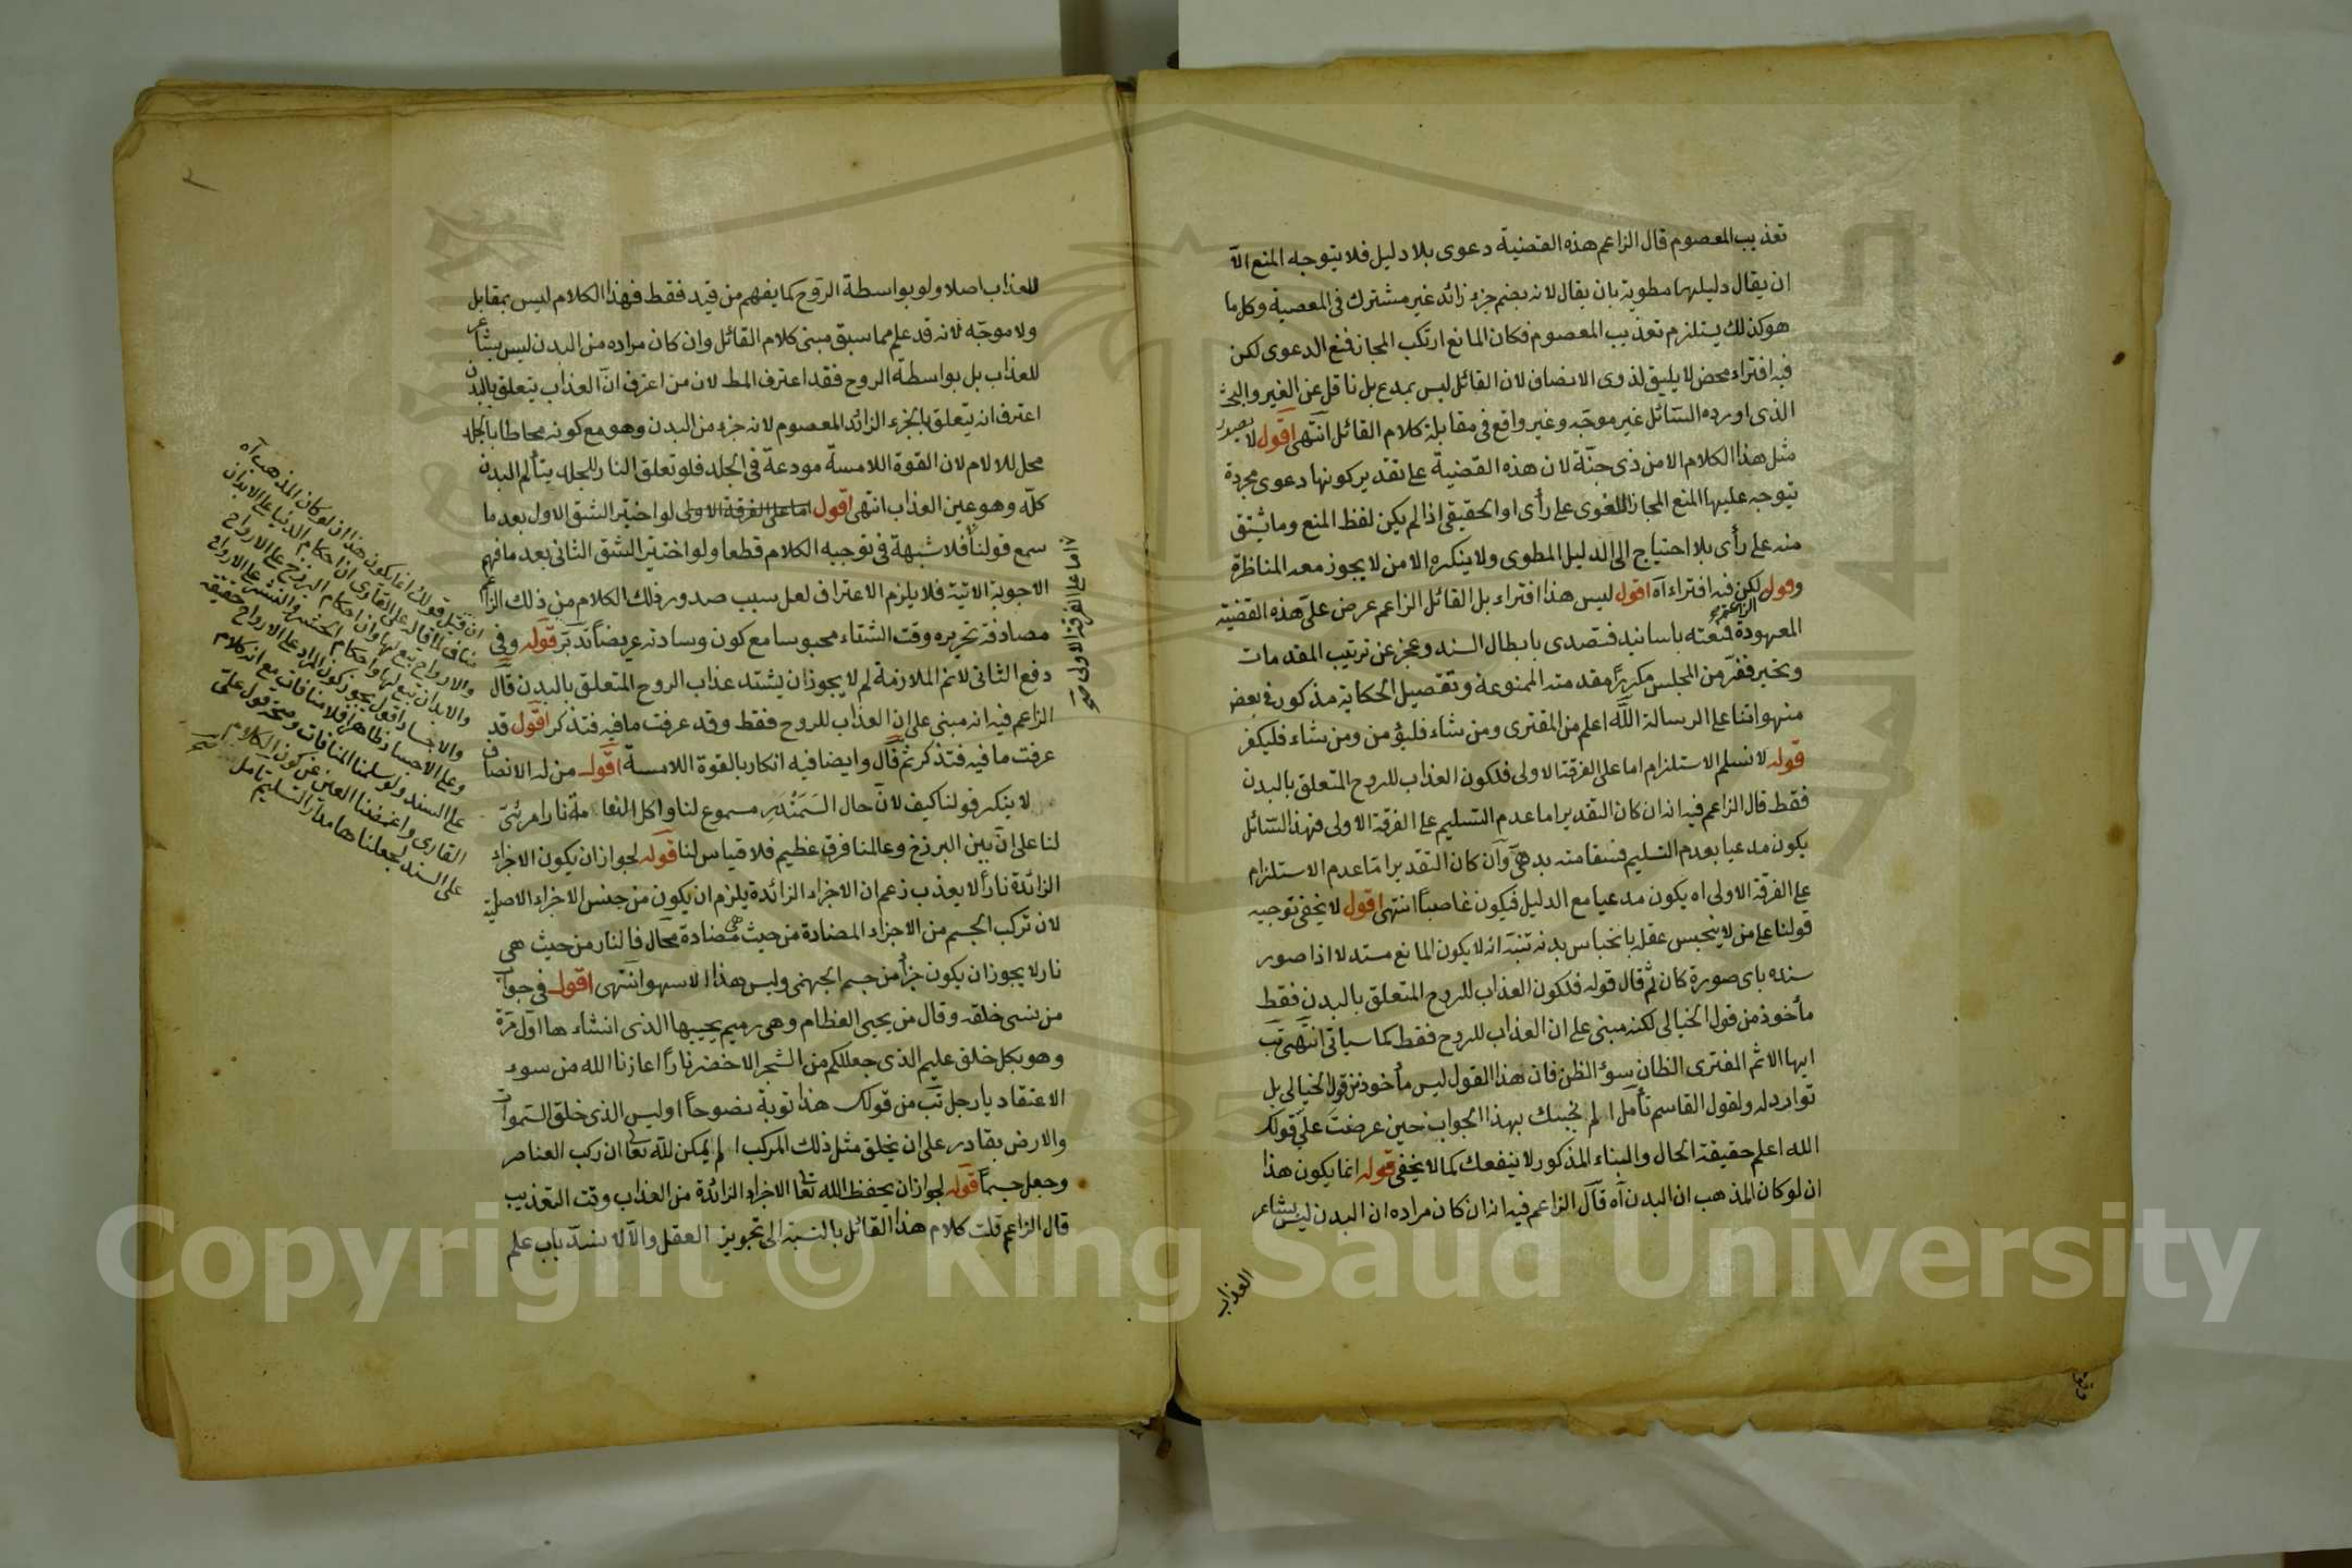 تعذيب المعصوم قال الزاعم هذه القضية دعوى بلا دليل فلا يتوجه المنع الا
ان يقال دليلها مطوية بان يقال لانه بضم جزء زائد غير مشترك فى المعصية وكل ما
هو كذلك يستلزم تعذيب المعصوم فكان المانع ارتكب المجاز فنع الدعوى لكن
فيه افتراء محض لا يليق لذوى الانصاف لان القائل ليس بمدع بل ناقل عن الغير والبحث
الذى اورده السائل غير موجه وغير واقع فى مقابلة كلام القائل انتهى اقول لا يصدر
مثل هذا الكلام الا من ذى جنّة لان هذه القضية على تقدير كونها دعوى مجردة
يتوجه عليها المنع المجاز اللغوى على رأى او الحقيقى اذا لم يكن لفظ المنع وما يشتق
منه على رأى بلا احتياج الى الدليل المطوى ولا ينكره الا من لا يجوز معه المناظرة
وقول لكن فيه افتراء آه اقول ليس هذا افتراء بل القائل الزاعم عرض علىّ هذه القضية
المعهودة فنعته باسانيد فتصدى بابطال السند وعجز عن ترتيب المقدمات
وتحير ففرّ من المجلس مكررًا مقدمته الممنوعة وتفصيل الحكاية مذكور فى بعض
منهواتنا على الرسالة اللّه اعلم من المفترى ومن شاء فليؤمن ومن شاء فليكفر
قوله لا نسلم الاستلزام اما على الفرقة الاولى فلكون العذاب للروح المتعلق بالبدن
فقط قال الزاعم فيه انه ان كان التقدير اما عدم التسليم على الفرقة الاولى فهذا السائل
يكون مدعيا بعدم التسليم فسقامته بدهىّ وان كان التقدير اما عدم الاستلزام
على الفرقة الاولى اه يكون مدعيا مع الدليل فيكون غاصبًا انتهى اقول لا يخفى توجيه
قولنا على من لا ينحبس عقله بانحباس بدنه تنبّه انه لا يكون المانع مستدلا اذا صور
سنده باى صورة كان ثم قال قوله فلكون العذاب للروح المتعلق بالبدن فقط
مأخوذ من قول الخيالى لكنه مبنى على ان العذاب للروح فقط كما سياتى انتهى تب
ايها الاثم المفترى الظان سوء الظن فان هذا القول ليس مأخوذ من قول الخيالى بل
توارد له ولقول القاسم تأمل الم نجبك بهذا الجواب حين عرضت علىّ قولك
الله اعلم حقيقة الحال والبناء المذكور لا ينفعك كما لا يخفى قوله انما يكون هذا
ان لو كان المذهب ان البدن آه قال الزاعم فيه انه ان كان مراده ان البدن ليس بشاعر
العذاب
للعذاب اصلا ولو بواسطة الروح كما يفهم من قيد فقط فهذا الكلام ليس بمقابل
ولا موجّه لانه قد علم مما سبق مبنى كلام القائل وان كان مراده من البدن ليس بشاعر
للعذاب بل بواسطة الروح فقد اعترف المط لان من اعترف ان العذاب يتعلق بالبدن
اعترف انه يتعلق بالجزء الزائد المعصوم لانه جزء من البدن وهو مع كونه محاطا بالجلد
محل للالام لان القوة اللامسة مودعة فى الجلد فلو تعلق النار للجلد يتألم البدن
كلّه وهو عين العذاب انتهى اقول اما على الفرقة الاولى لو اختير الشق الاول بعد ما
سمع قولنا فلا شبهة فى توجيه الكلام قطعا ولو اختير الشق الثانى بعد ما فهم
الاجوبة الاتية فلا يلزم الاعتراف لعل سبب صدور ذلك الكلام من ذلك الزاعم
مصادفة تحريره وقت الشتاء محبوسا مع كون وسادته عريضًا تدبّر قوله وفى
دفع الثانى لا نم الملازمة لم لا يجوز ان يشتد عذاب الروح المتعلق بالبدن قال
الزاعم فيه انه مبنى على ان العذاب للروح فقط وقد عرفت ما فيه فتذكر اقول قد
عرفت ما فيه فتذكر ثم قال وايضا فيه انكار بالقوة اللامسة اقول من له الانصاف
لا ينكر قولنا كيف لان حال السَمَنْدَر مسموع لنا واكل النعامة نارا مرئىّ
لنا على ان بين البرزخ وعالمنا فرق عظيم فلا قياس لنا قوله لجواز ان يكون الاجزاء
الزائدة نارًا لا يعذب زعم ان الاجزاء الزائدة يلزم ان يكون من جنس الاجزاء الاصلية
لان تركب الجسم من الاجزاء المضادة من حيث هى مضادة محال فالنار من حيث هى
نار لا يجوز ان يكون جزأ من جسم الجهنمى وليس هذا الا سهو انتهى اقول فى جواب
من نسى خلقه وقال من يحيى العظام وهى رميم يحييها الذى انشاءها اوّل مرّة
وهو بكل خلق عليم الذى جعل لكم من الشجر الاخضر نارًا اعاذنا الله من سوء
الاعتقاد يا رجل تب من قولك هذا توبة نصوحًا اوليس الذى خلق السموات
والارض بقادر على ان يخلق مثل ذلك المركب الم يمكن للّه تعا ان ركب العناصر
وجعل جسمًا قوله لجواز ان يحفظ الله تعا الاجزاء الزائدة من العذاب وقت التعذيب
قال الزاعم قلت كلام هذا القائل بالنسبة الى تجويز العقل والا لانسدّ باب علم
اما على الفرقة الاولى
ان قيل قولك انما يكون هذا ان لو كان المذهب آه
مناف لما قاله على القارى ان احكام الدنيا على الابدان
والارواح تبع لها وان احكام البرزخ على الارواح
والابدان تبع لها واحكام الحشر والنشر على الارواح
والاجساد اقول يجوز كون المراد على الارواح حقيقة
وعلى الاجساد ظاهرا فلا منافات مع انه كلام
على السند ولو سلمنا المنافات وصحة قول على
القارى واغمضنا العين عن كون الكلام
على السند لجعلناها مدار التسليم تأمل
Copyright © King Saud University